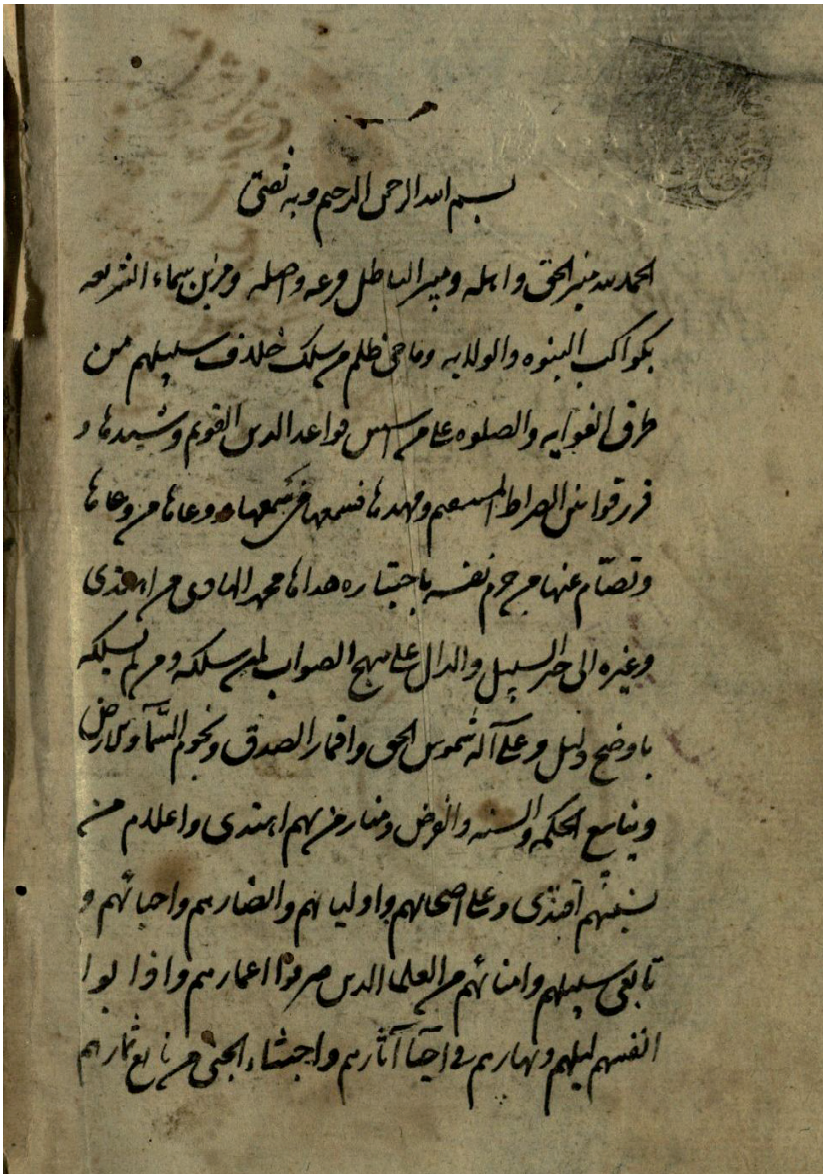 بسم الله الرحمن الرحیم وبه ثقتی
الحمد لله منیر الحق واهله ومبیر الباطل فرعه واصله ومزین سماء الشریعه
بکواکب النبوه والولایه وماحی ظلم من سلک خلاف سبیلهم من
طرق الغوایه والصلوه علی من اسس قواعد الدین القویم وشیدها و
قرر قوانین الصراط المستقیم ومهدها فسمعها من سمعها ووعاها من وعاها
وتصامّ عنها من حرم نفسه باختیاره هداها محمد الهادی من اهتدی
وغیره الی خیر السبیل والدال علی نهج الصواب لمن سلکه ومن لم یسلکه
باوضح دلیل وعلی آله شموس الحق واقمار الصدق ونجوم السّمآء والارض
وینابیع الحکمه والسنه والفرض ومنار من بهم اهتدی واعلام من
بسنتهم اقتدی وعلی اصحابهم واولیائهم وانصارهم واحبائهم و
تابعی سبیلهم وامنائهم من العلما الذین صرفوا اعمارهم واذابوا
انفسهم لیلهم ونهارهم فی احیآء آثارهم واجتناء الجنی من یانع ثمارهم